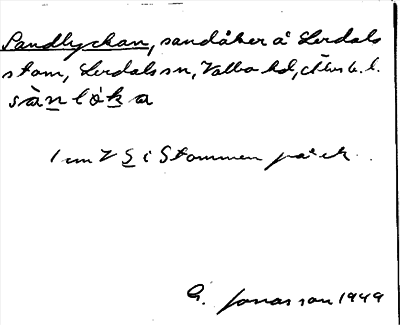 Sandlyckan, sandåker å Lerdals
stom, Lerdals sn, Valbo hd, Älvsb. l.
sànlóka
1 cm V S i Stommen på ek.
G. Jonasson 1949